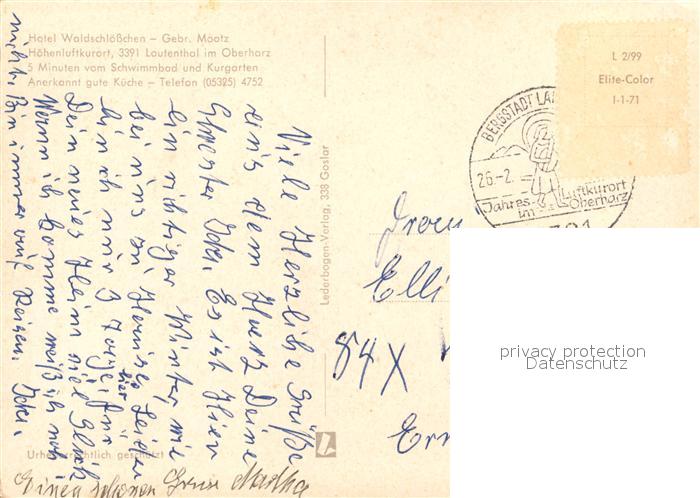 Hotel Waldschlößchen – Gebr. Mootz
Höhenluftkurort, 3391 Lautenthal im Oberharz
5 Minuten vom Schwimmbad und Kurgarten
Anerkannt gute Küche – Telefon (05325) 4752
Viele Herzliche Grüße
aus dem Harz Deine
Schwester Ida. Es ist Hier
ein richtiger Winter, wie
bei uns zu Hause. Leider
bin ich nur 3 Tage hier, für
Dein neues Heim viel Glück
Wann ich komme weiß ich noch
nicht. Bin immer auf Reisen. Ida.
Einen schönen Gruss Martha
Urheberrechtlich geschützt
Lederbogen-Verlag, 338 Goslar
L 2/99
Elite-Color
I-1-71
BERGSTADT LA
26.-2.
Jahres- Luftkurort
im Oberharz
Frau
Elli
84X
privacy protection
Datenschutz